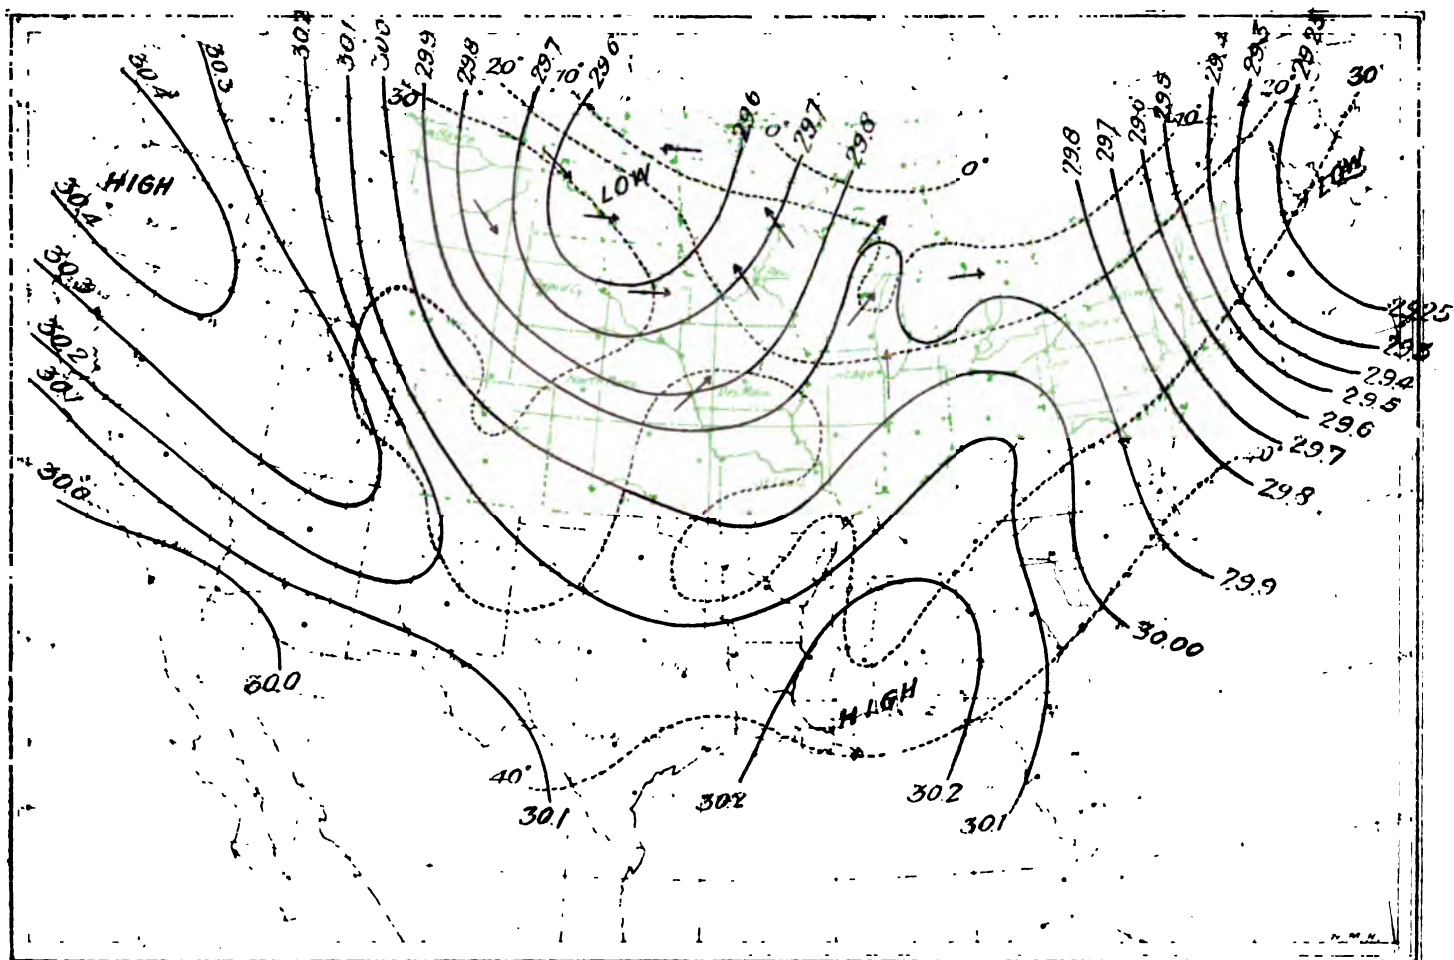 30.4
30.3
30.2
30.1
30.0
29.9
29.8
20°
29.7
10°
29.6
29.4
29.3
29.25
20°
30°
30°
29.6
0°
29.7
29.8
29.8
29.7
29.5
10°
0°
HIGH
LOW
LOW
30.4
30.3
30.2
30.1
30.0
29.25
29.3
29.4
29.5
29.6
29.7
29.8
29.9
30.00
30.0
HIGH
40°
30.1
30.2
30.2
30.1